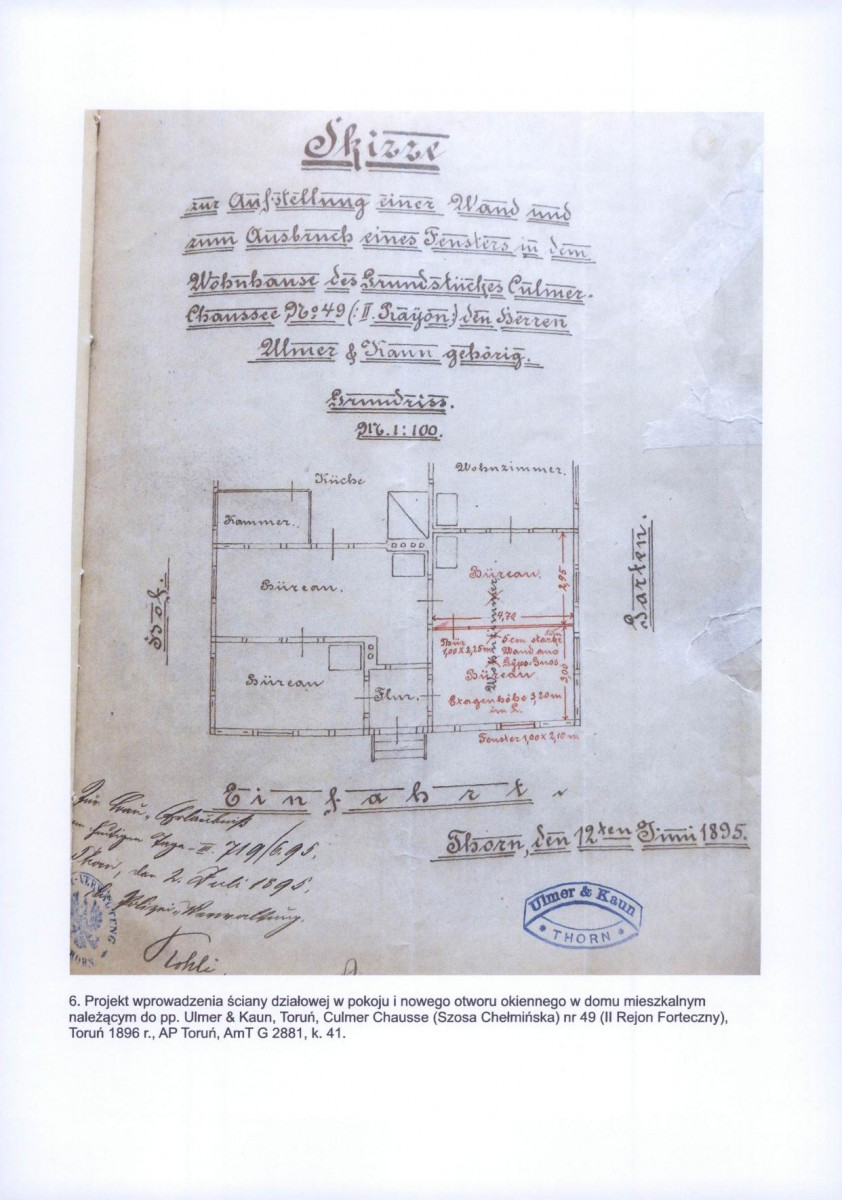 Skizze
zur Aufstellung einer Wand und
zum Ausbruch eines Fensters in dem
Wohnhause des Grundstückes Culmer-
Chaussee No. 49 (: II. Rayon:) den Herren
Ulmer & Kaun gehörig.
Grundriss.
M. 1:100.
Küche
Wohnzimmer.
Kammer.
Büreau.
Büreau.
2,95
4,70
Garten.
Hof.
Thür
1,00 x 2,25 m
5 cm starke
Wand aus
Wohnzimmer
Büreau
3,00
Büreau
Flur.
Etagenhöhe 3,20 m
im L.
Fenster 1,00 x 2,10 m
Einfahrt
Thorn, den 12ten Juni 1895.
Zur Bau-Erlaubniß
heutigen Tage II. 719/6.95.
Thorn, den 2. Juli 1895.
Polizei-Verwaltung.
Ulmer & Kaun
THORN
6. Projekt wprowadzenia ściany działowej w pokoju i nowego otworu okiennego w domu mieszkalnym
należącym do pp. Ulmer & Kaun, Toruń, Culmer Chausse (Szosa Chełmińska) nr 49 (II Rejon Forteczny),
Toruń 1896 r., AP Toruń, AmT G 2881, k. 41.